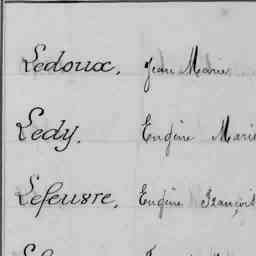 Ledoux, Jean Marie
Ledy, Eugène Marie
Lefeuvre, Eugène François